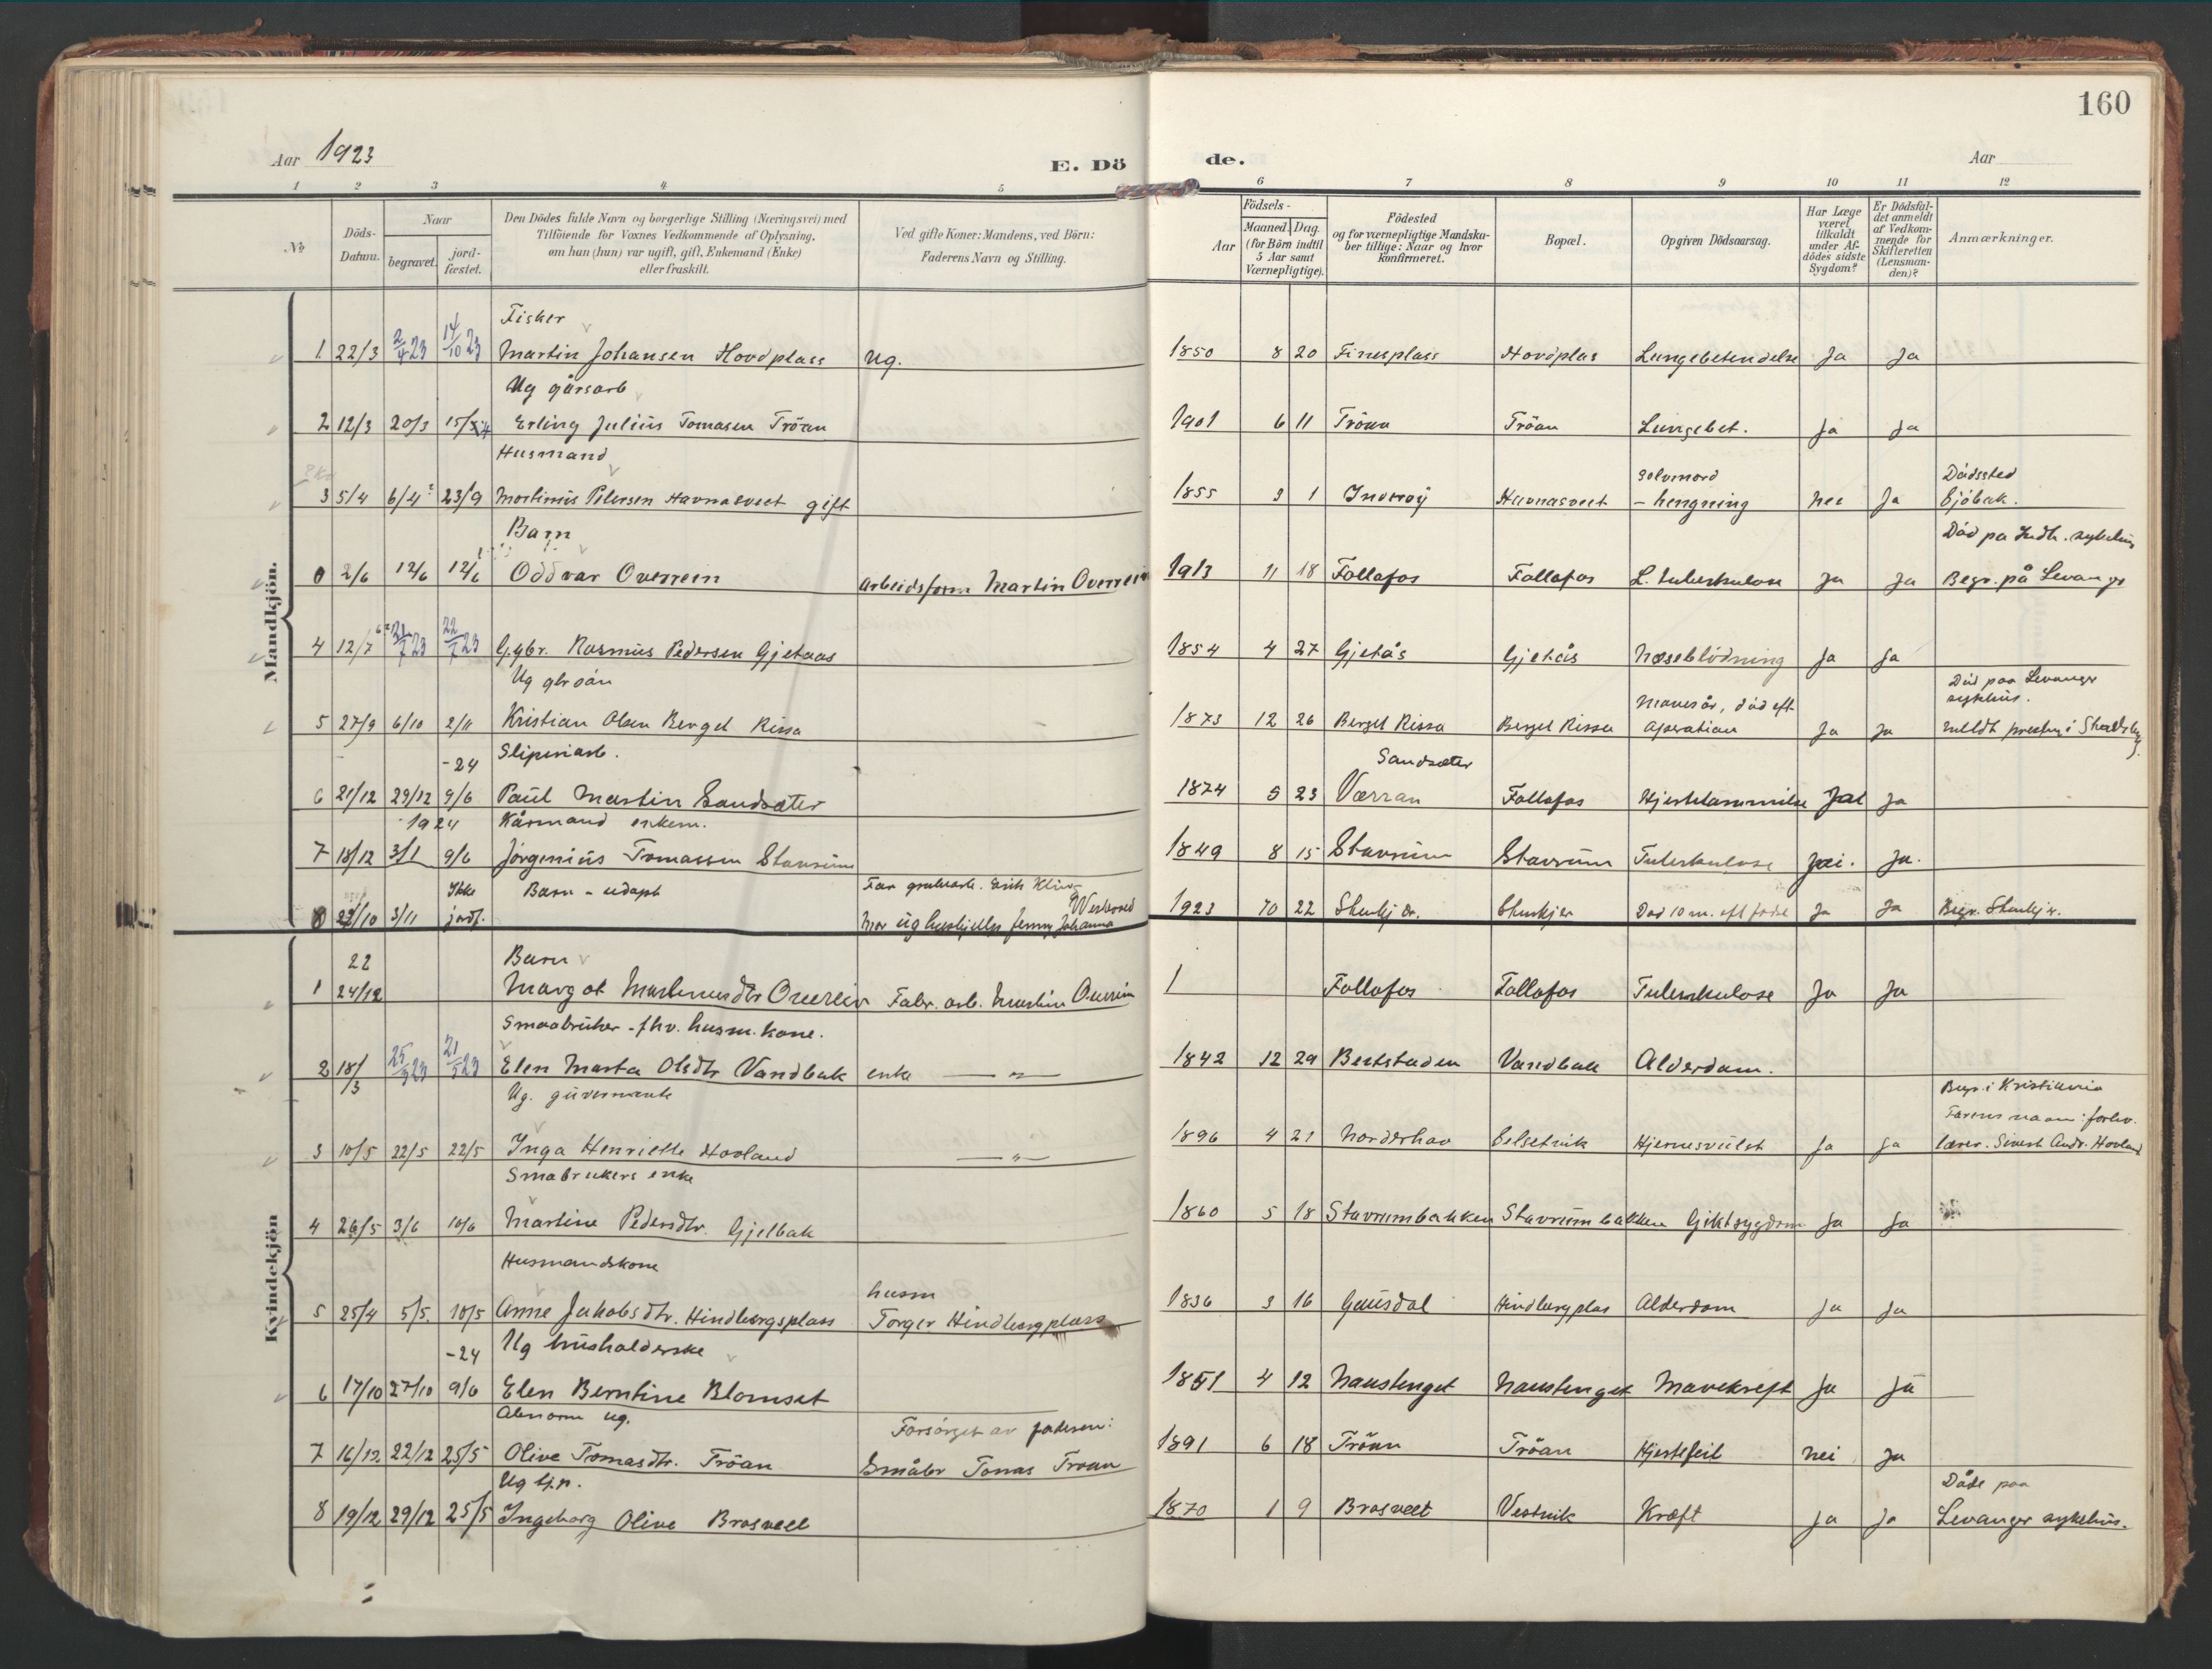 160
Aar 1923
E. Dö
de.
Aar
1 2 3 4 5 6 7 8 9 10 11 12
No
Döds-
Datum.
Naar
begravet.
jord-
fæstet.
Den Dödes fulde Navn og borgerlige Stilling (Næringsvei) med
Tilföiende for Voxnes Vedkommende af Oplysning,
om han (hun) var ugift, gift, Enkemand (Enke)
eller fraskilt.
Ved gifte Koner: Mandens, ved Börn:
Faderens Navn og Stilling.
Födsels-
Aar
Maaned. Dag.
(for Börn indtil
5 Aar samt
Værnepligtige).
Födested
og for værnepligtige Mandska-
ber tillige: Naar og hvor
konfirmeret.
Bopæl.
Opgiven Dödsaarsag.
Har Læge
været
tilkaldt
under Af-
dödes sidste
Sygdom?
Er Dödsfal-
det anmeldt
af Vedkom-
mende for
Skifteretten
(Lensman-
den)?
Anmærkninger.
Mandkjön.
Fisker
1 22/3 2/4 23 14/10 23 Martin Johansen Hovdplass Ug. 1850 8 20 Finesplass Hovdplas Lungebetendelse Ja Ja
Ug gårsarb
2 12/3 20/3 15/4 Erling Julius Tomasen Tröan 1901 6 11 Tröan Tröan Lungebet. Ja Ja
Husmand
selvmord
Dödssted
3 5/4 6/4 23/9 Martinus Petersen Havnasveet gift 1855 3 1 Inderöy Havnasveet - hengning nei Ja Sjöbak.
Barn
Död pa Indh. sykehus
0 2/6 12/6 12/6 Oddvar Overrein Arbeidsform Martin Overrein 1913 11 18 Follafos Follafos L. tuberkulose Ja Ja Begr. på Levanger
4 12/7 21/7 23 22/7 23 G.gbr. Rasmus Pedersen Gjetaas 1854 4 27 Gjetås Gjetås Næseblödning Ja Ja
Ug
Mavesår, död eft
Död paa Levanger
sykehus.
5 27/9 6/10 2/11 Kristian Olsen Berget Rissa 1873 12 26 Berget Rissa Berget Rissa operation Ja Ja
-24 Sliperiarb.
Sandsæter
6 21/12 29/12 9/6 Paul Martin Sandsæter 1874 5 23 Værran Follafos Hjertelammelse Ja Ja
1924 Kårmand enkem.
7 18/12 3/1 9/6 Jörginius Tomassen Stavrum 1849 8 15 Stavrum Stavrum Tuberkulose Ja.
Ikke Barn - udöpt Far Erik
0 22/10 3/11 jordf. Mor ug Jenny Johanna 1923 10 22 Stenkjær. Stenkjer Död 10 m. eft Ja Ja Begr. Stenkjer.
Kvindekjön
22 Barn
1 24/12 Margot Martinusdtr Overrein Fabr. arb. Martin Overrein Follafos Follafos Tuberkulose Ja Ja
Smaabruker - fhv. husm. kone.
2 18/3 25/3 23 21/5 23 Elen Marta Olsdtr Vandbak enke — " — 1842 12 29 Beitstaden Vandbak Alderdom.
Ug. guvernante
Begr. i Kristiania
Farens navn: forhv.
3 10/5 22/5 22/5 Inga Henriette Hovland — " — 1896 4 21 Norderhov Hjernesvulst Ja Ja lærer. Sivert Andr. Hovland
Smabrukers enke
4 26/5 3/6 10/6 Martine Pedersdtr. Gjelbak 1860 5 18 Stavrumbakken Stavrumbakken Giktsygdom Ja Ja
Husmandskone
husm
5 25/4 5/5. 10/5 Anne Jakobsdtr. Hindbergsplass Torger Hindbergplass 1836 3 16 Gausdal Hindbergplas Alderdom Ja Ja
-24 Ug husholderske
6 17/10 27/10 9/6 Elen Berntine Blomset 1851 4 12 Naustenget Naustenget Mavekreft Ja Ja
Abnorm ug.
Forsörget av faderen:
7 16/12 22/12 25/5 Olive Tomasdtr. Tröan Småbr Tomas Troan 1891 6 18 Tröan Tröan Hjertefeil nei Ja
Ug tj.p.
Döde paa
8 19/12 29/12 25/5 Ingeborg Olive Brasveet 1870 1 9 Brasveet Vestvik Kræft Ja Ja Levanger sykehus.